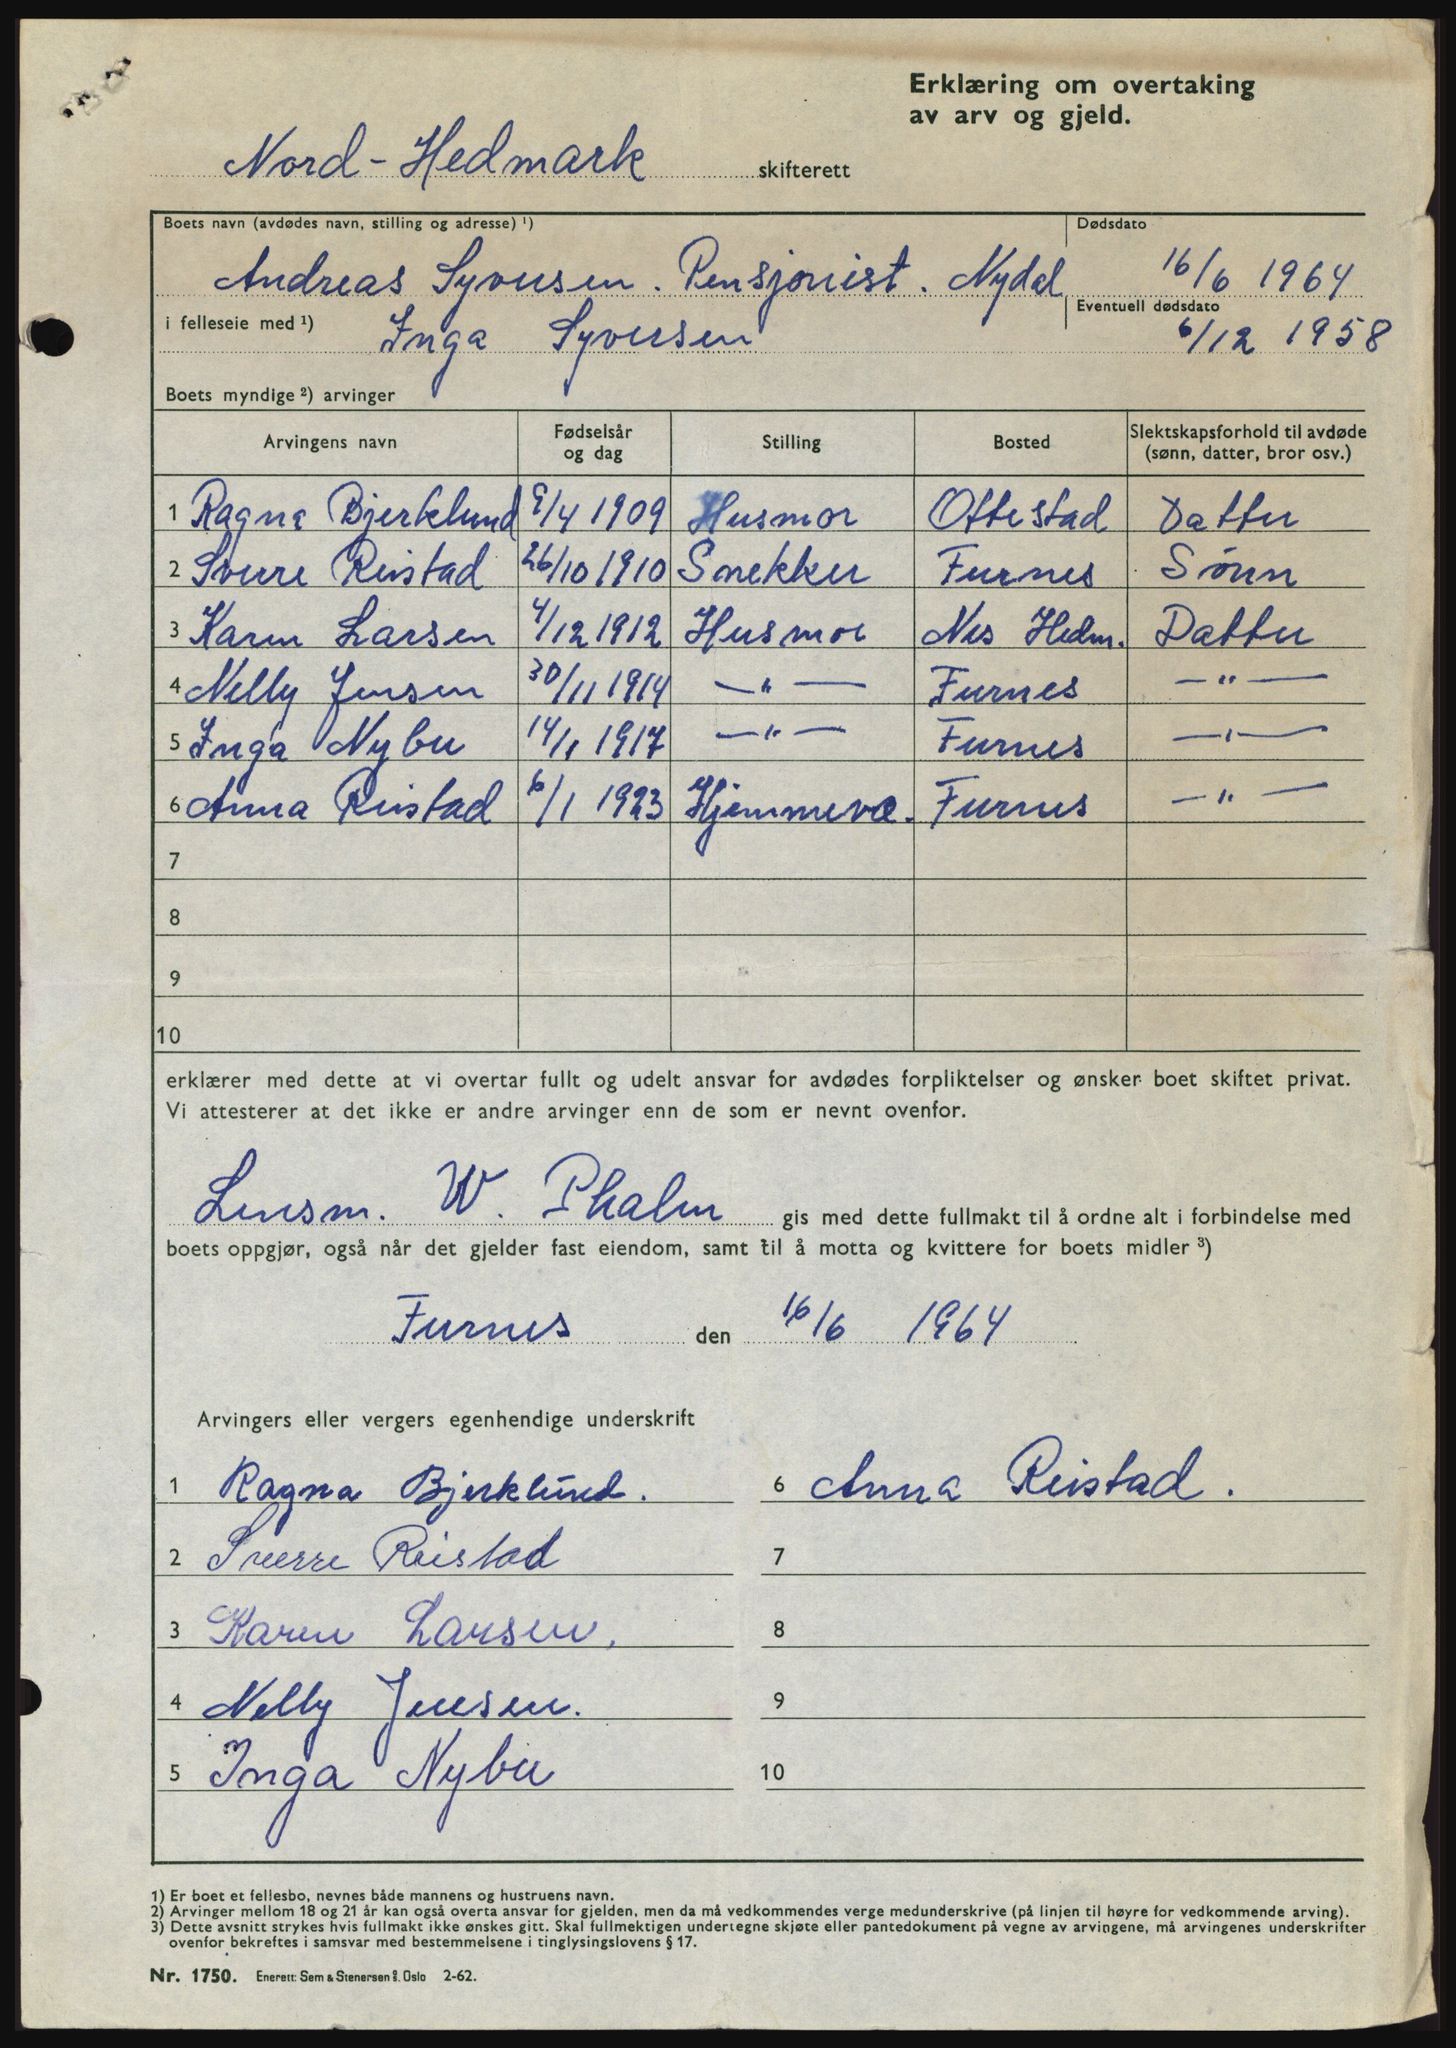 Erklæring om overtaking
av arv og gjeld.
Nord-Hedmark skifterett
Boets navn (avdødes navn, stilling og adresse) ¹) Dødsdato
Andreas Syversen. Pensjonist. Nydal 16/6 1964
i felleseie med ¹) Inga Syversen Eventuell dødsdato 6/12 1958
Boets myndige ²) arvinger
Arvingens navn Fødselsår og dag Stilling Bosted Slektskapsforhold til avdøde (sønn, datter, bror osv.)
1 Ragna Bjerklund 9/4 1909 Husmor Ottestad Datter
2 Sverre Reistad 26/10 1910 Snekker Furnes Sønn
3 Karen Larsen 4/12 1912 Husmor Nes Hedm. Datter
4 Nelly Jensen 30/11 1914 —"— Furnes —"—
5 Inga Nybu 14/1 1917 —"— Furnes —"—
6 Anna Reistad 6/1 1923 Hjemmevæ. Furnes —"—
7
8
9
10
erklærer med dette at vi overtar fullt og udelt ansvar for avdødes forpliktelser og ønsker boet skiftet privat.
Vi attesterer at det ikke er andre arvinger enn de som er nevnt ovenfor.
Lensm. W. Phalen gis med dette fullmakt til å ordne alt i forbindelse med
boets oppgjør, også når det gjelder fast eiendom, samt til å motta og kvittere for boets midler ³)
Furnes den 16/6 1964
Arvingers eller vergers egenhendige underskrift
1 Ragna Bjerklund. 6 Anna Reistad.
2 Sverre Reistad 7
3 Karen Larsen. 8
4 Nelly Jensen. 9
5 Inga Nybu 10
1) Er boet et fellesbo, nevnes både mannens og hustruens navn.
2) Arvinger mellom 18 og 21 år kan også overta ansvar for gjelden, men da må vedkommendes verge medunderskrive (på linjen til høyre for vedkommende arving).
3) Dette avsnitt strykes hvis fullmakt ikke ønskes gitt. Skal fullmektigen undertegne skjøte eller pantedokument på vegne av arvingene, må arvingenes underskrifter
ovenfor bekreftes i samsvar med bestemmelsene i tinglysingslovens § 17.
Nr. 1750. Enerett: Sem & Stenersen A/S. Oslo 2-62.